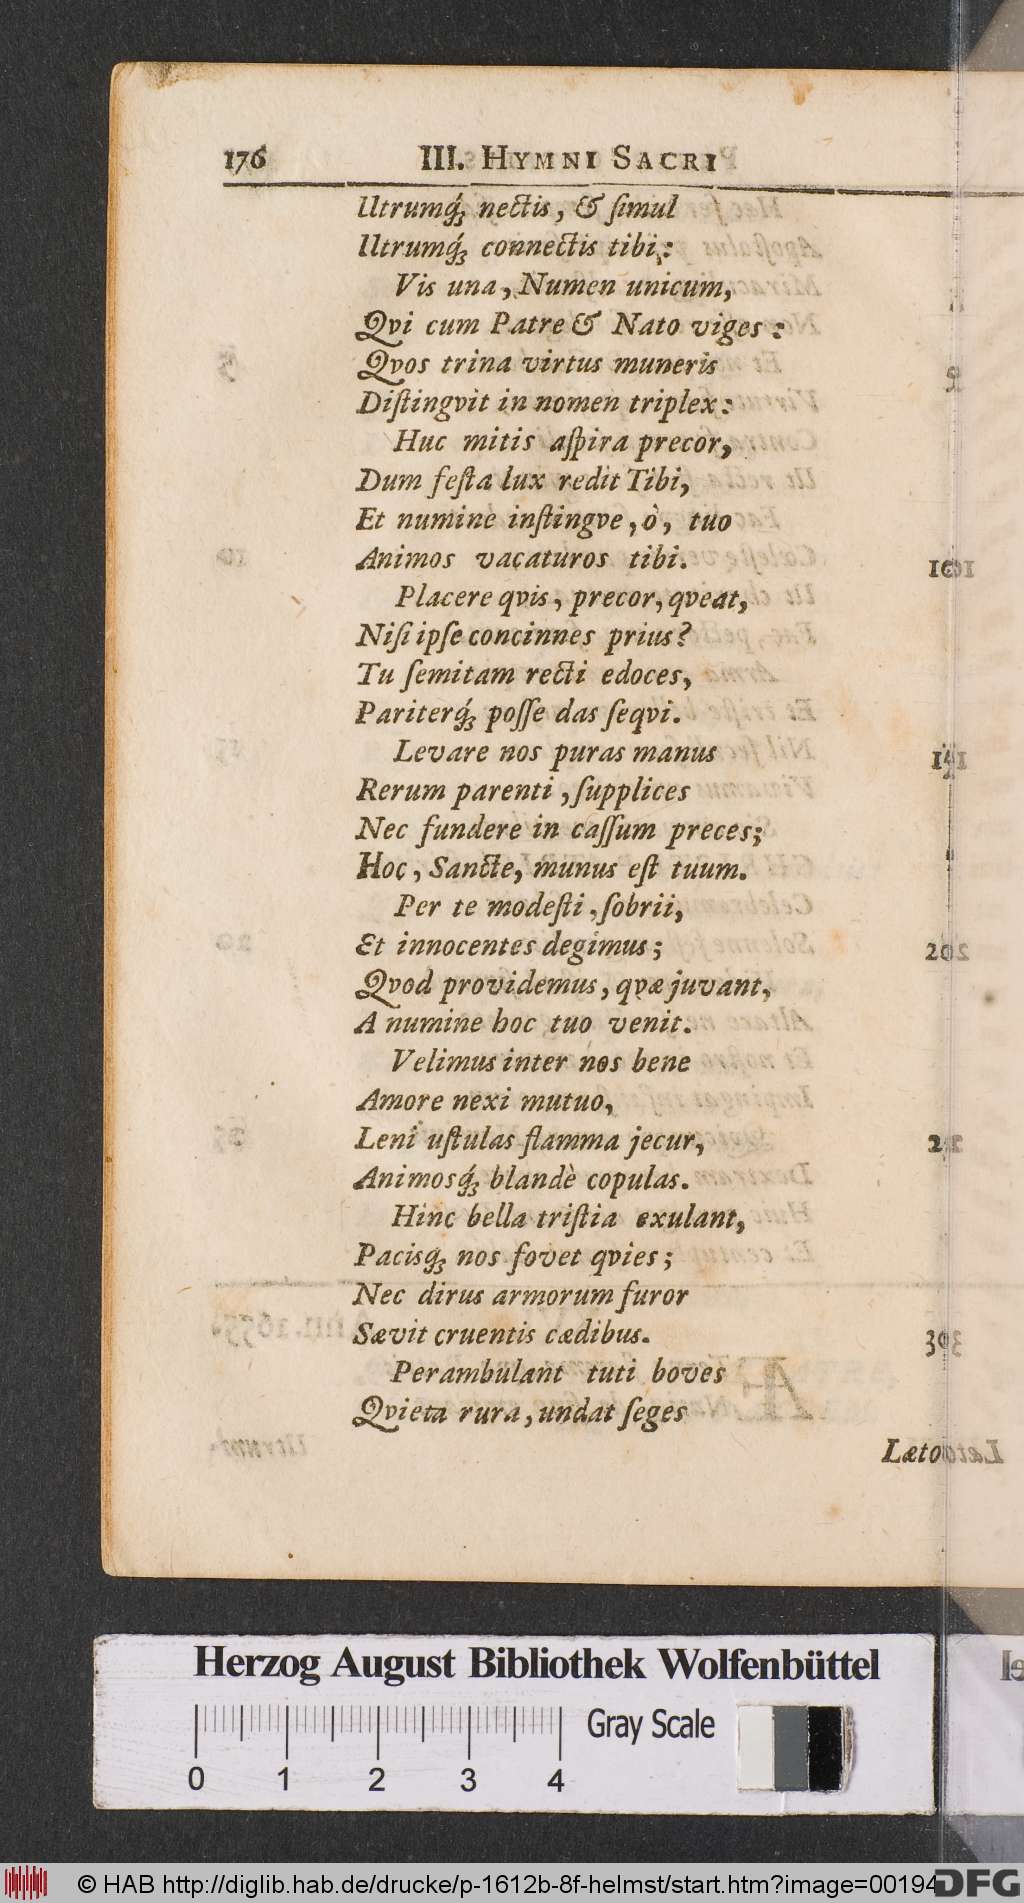 176 III. HYMNI SACRI
Utrumq́ꝫ nectis, & ſimul
Utrumq́ꝫ connectis tibi:
Vis una, Numen unicum,
Qvi cum Patre & Nato viges:
Qvos trina virtus muneris
Diſtingvit in nomen triplex:
Huc mitis aſpira precor,
Dum feſta lux redit Tibi,
Et numine inſtingve, ò, tuo
Animos vacaturos tibi.
10
Placere qvis, precor, qveat,
Niſi ipſe concinnes prius?
Tu ſemitam recti edoces,
Pariterq́ꝫ poſſe das ſeqvi.
Levare nos puras manus
15
Rerum parenti, ſupplices
Nec fundere in caſſum preces;
Hoc, Sancte, munus eſt tuum.
Per te modeſti, ſobrii,
Et innocentes degimus;
20
Qvod providemus, qvæ juvant,
A numine hoc tuo venit.
Velimus inter nos bene
Amore nexi mutuo,
Leni uſtulas flamma jecur,
Animosq́ꝫ blandè copulas.
Hinc bella triſtia exulant,
Pacisq́ꝫ nos fovet qvies;
Nec dirus armorum furor
Sævit cruentis cædibus.
30
Perambulant tuti boves
Qvieta rura, undat ſeges
Læto
Herzog August Bibliothek Wolfenbüttel
Gray Scale
0 1 2 3 4
© HAB http://diglib.hab.de/drucke/p-1612b-8f-helmst/start.htm?image=00194
DFG